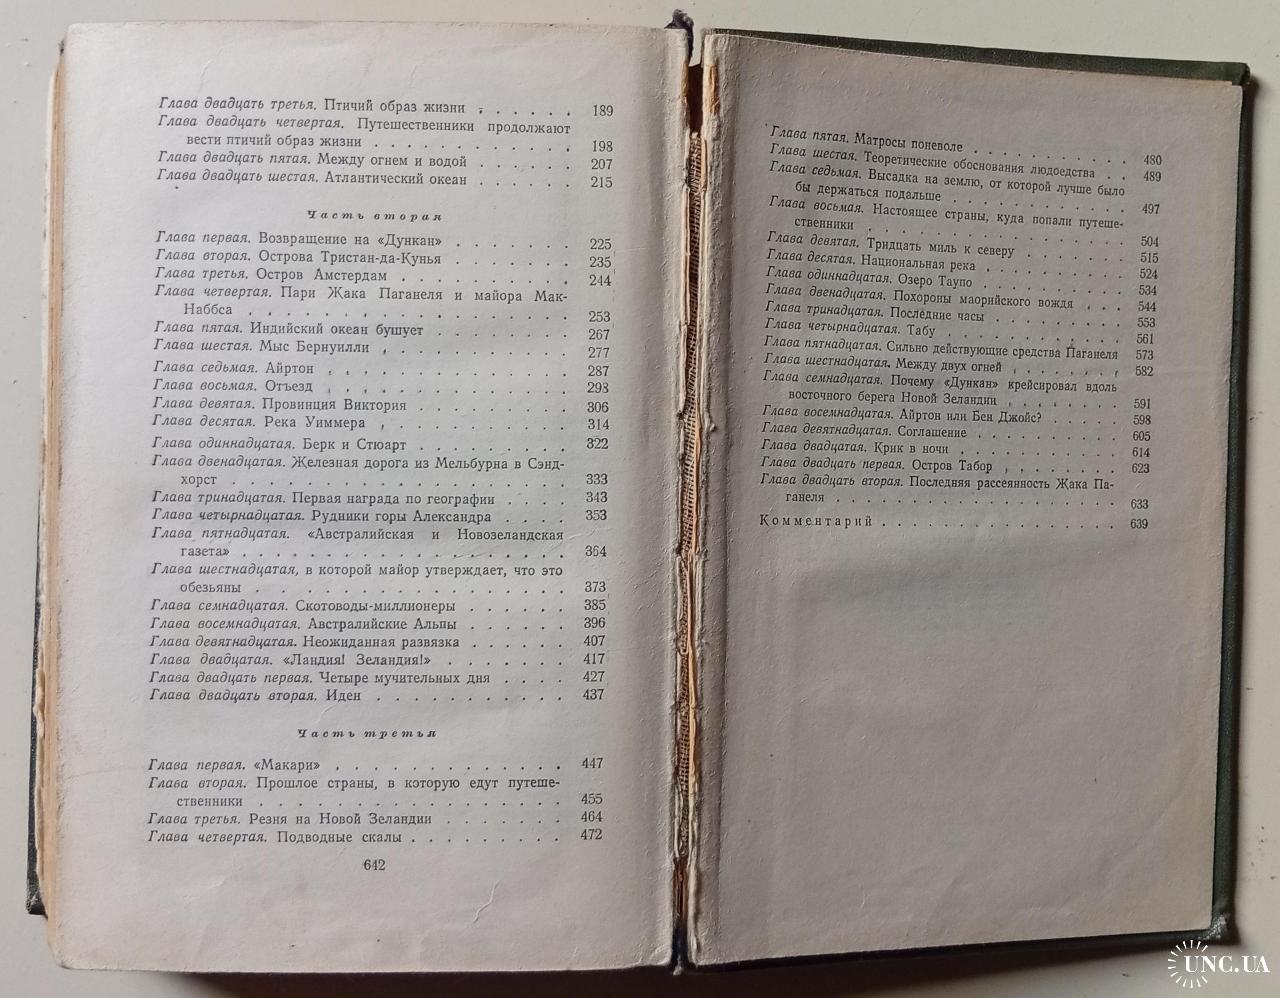 Глава двадцать третья. Птичий образ жизни . . . . . . 189
Глава двадцать четвертая. Путешественники продолжают
вести птичий образ жизни . . . . . . . . . . . 198
Глава двадцать пятая. Между огнем и водой . . . . . . 207
Глава двадцать шестая. Атлантический океан . . . . . . 215
Часть вторая
Глава первая. Возвращение на «Дункан» . . . . . . . 225
Глава вторая. Острова Тристан-да-Кунья . . . . . . . 235
Глава третья. Остров Амстердам . . . . . . . . . . 244
Глава четвертая. Пари Жака Паганеля и майора Мак-
Наббса . . . . . . . . . . . . . . . . . 253
Глава пятая. Индийский океан бушует . . . . . . . . 267
Глава шестая. Мыс Бернуилли . . . . . . . . . . . 277
Глава седьмая. Айртон . . . . . . . . . . . . . . 287
Глава восьмая. Отъезд . . . . . . . . . . . . . . 298
Глава девятая. Провинция Виктория . . . . . . . . . 306
Глава десятая. Река Уиммера . . . . . . . . . . . 314
Глава одиннадцатая. Берк и Стюарт . . . . . . . . . 322
Глава двенадцатая. Железная дорога из Мельбурна в Сэнд-
хорст . . . . . . . . . . . . . . . . . . 333
Глава тринадцатая. Первая награда по географии . . . . 343
Глава четырнадцатая. Рудники горы Александра . . . . 353
Глава пятнадцатая. «Австралийская и Новозеландская
газета» . . . . . . . . . . . . . . . . . 364
Глава шестнадцатая, в которой майор утверждает, что это
обезьяны . . . . . . . . . . . . . . . . 373
Глава семнадцатая. Скотоводы-миллионеры . . . . . . 385
Глава восемнадцатая. Австралийские Альпы . . . . . . 396
Глава девятнадцатая. Неожиданная развязка . . . . . . 407
Глава двадцатая. «Ландия! Зеландия!» . . . . . . . 417
Глава двадцать первая. Четыре мучительных дня . . . . 427
Глава двадцать вторая. Иден . . . . . . . . . . . 437
Часть третья
Глава первая. «Макари» . . . . . . . . . . . . . 447
Глава вторая. Прошлое страны, в которую едут путеше-
ственники . . . . . . . . . . . . . . . . 455
Глава третья. Резня на Новой Зеландии . . . . . . . 464
Глава четвертая. Подводные скалы . . . . . . . . . 472
642
Глава пятая. Матросы поневоле . . . . . . . . . . 480
Глава шестая. Теоретические обоснования людоедства . . 489
Глава седьмая. Высадка на землю, от которой лучше было
бы держаться подальше . . . . . . . . . . . . 497
Глава восьмая. Настоящее страны, куда попали путеше-
ственники . . . . . . . . . . . . . . . . 504
Глава девятая. Тридцать миль к северу . . . . . . . 515
Глава десятая. Национальная река . . . . . . . . . 524
Глава одиннадцатая. Озеро Таупо . . . . . . . . . . 534
Глава двенадцатая. Похороны маорийского вождя . . . 544
Глава тринадцатая. Последние часы . . . . . . . . . 553
Глава четырнадцатая. Табу . . . . . . . . . . . . 561
Глава пятнадцатая. Сильно действующие средства Паганеля 573
Глава шестнадцатая. Между двух огней . . . . . . . . 582
Глава семнадцатая. Почему «Дункан» крейсировал вдоль
восточного берега Новой Зеландии . . . . . . . . 591
Глава восемнадцатая. Айртон или Бен Джойс? . . . . . 598
Глава девятнадцатая. Соглашение . . . . . . . . . . 605
Глава двадцатая. Крик в ночи . . . . . . . . . . . 614
Глава двадцать первая. Остров Табор . . . . . . . . 623
Глава двадцать вторая. Последняя рассеянность Жака Па-
ганеля . . . . . . . . . . . . . . . . . 633
Комментарий . . . . . . . . . . . . . . . . 639
UNC.UA